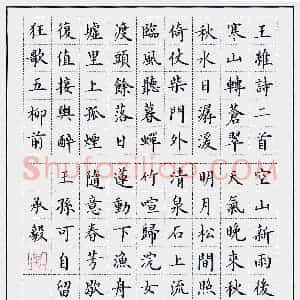 王維詩二首空山新雨後
寒山轉蒼翠天氣晚來秋
秋水日潺湲明月松間照
倚杖柴門外清泉石上流
臨風聽暮蟬竹喧歸浣女
渡頭餘落日蓮動下漁舟
墟里上孤煙隨意春芳歇
復值接輿醉王孫可自留
狂歌五柳前
承毅
Shufaziliao.com